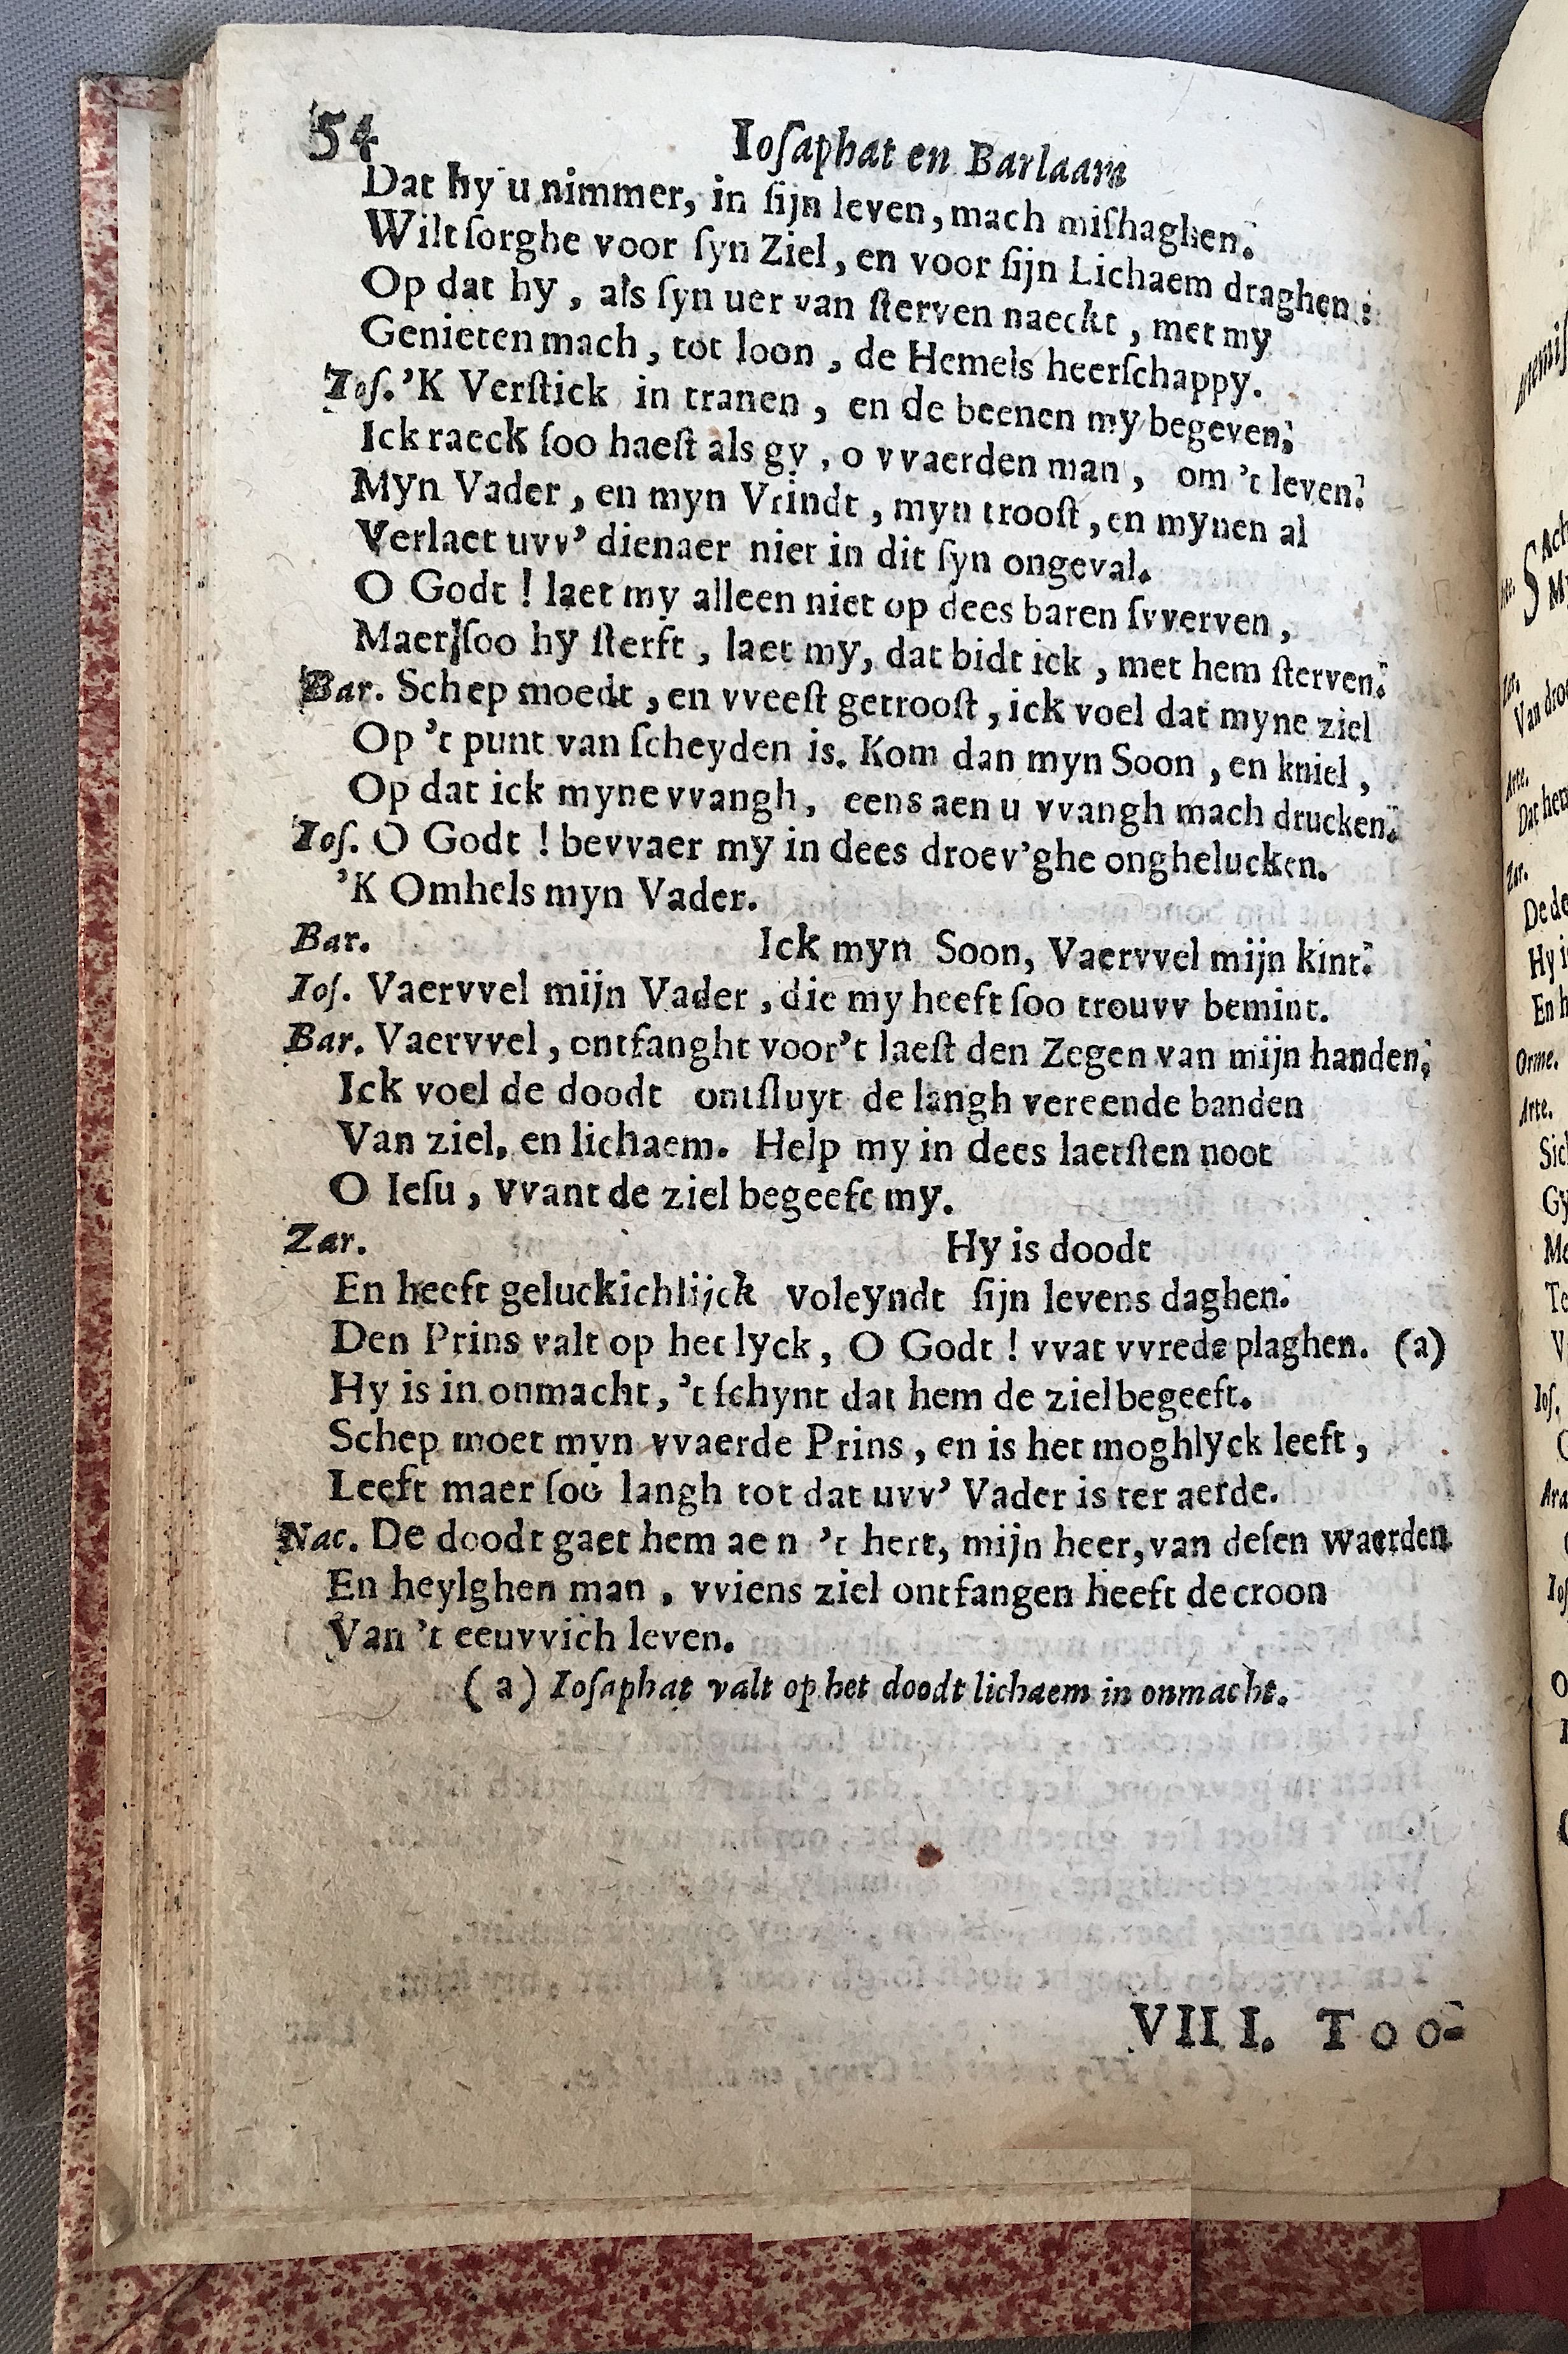 54
Ioſaphat en Barlaam
Dat hy u nimmer, in ſijn leven, mach miſhaghen.
Wilt ſorghe voor ſyn Ziel, en voor ſijn Lichaem draghen:
Op dat hy, als ſyn uer van ſterven naeckt, met my
Genieten mach, tot loon, de Hemels heerſchappy.
Ioſ. 'K Verſtick in tranen, en de beenen my begeven;
Ick raeck ſoo haeſt als gy, o vvaerden man, om 't leven.
Myn Vader, en myn Vrindt, myn trooſt, en mynen al
Verlaet uvv' dienaer niet in dit ſyn ongeval.
O Godt! laet my alleen niet op dees baren ſvverven,
Maer ſoo hy ſterft, laet my, dat bidt ick, met hem ſterven.
Bar. Schep moedt, en vveeſt getrooſt, ick voel dat myne ziel
Op 't punt van ſcheyden is. Kom dan myn Soon, en kniel,
Op dat ick myne vvangh, eens aen u vvangh mach drucken.
Ioſ. O Godt! bevvaer my in dees droev'ghe onghelucken.
'K Omhels myn Vader.
Bar. Ick myn Soon, Vaervvel mijn kint.
Ioſ. Vaervvel mijn Vader, die my heeft ſoo trouvv bemint.
Bar. Vaervvel, ontfanght voor't laeſt den Zegen van mijn handen,
Ick voel de doodt ontſluyt de langh vereende banden
Van ziel, en lichaem. Help my in dees laetſten noot
O Ieſu, vvant de ziel begeeft my.
Zar. Hy is doodt
En heeft geluckichlijck voleyndt ſijn levens daghen.
Den Prins valt op het lyck, O Godt! vvat vvrede plaghen. (a)
Hy is in onmacht, 't ſchynt dat hem de ziel begeeft.
Schep moet myn vvaerde Prins, en is het moghlyck leeft,
Leeft maer ſoo langh tot dat uvv' Vader is ter aerde.
Nac. De doodt gaet hem aen 't hert, mijn heer, van deſen waerden
En heylghen man, vviens ziel ontfangen heeft de croon
Van 't eeuvvich leven.
(a) Ioſaphat valt op het doodt lichaem in onmacht.
VIII. Too-